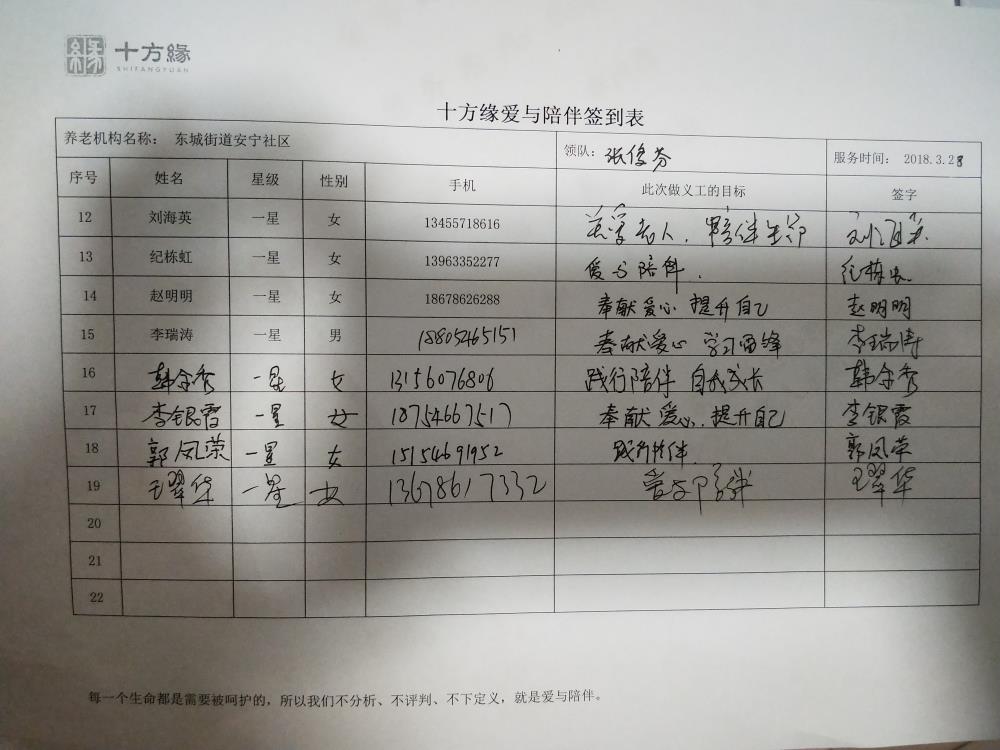 十方緣
SHIFANGYUAN
十方缘爱与陪伴签到表
养老机构名称： 东城街道安宁社区 领队：张俊芬 服务时间： 2018.3.28
序号 姓名 星级 性别 手机 此次做义工的目标 签字
12 刘海英 一星 女 13455718616 关爱老人，陪伴 刘海英
13 纪栋虹 一星 女 13963352277 爱与陪伴． 纪栋虹
14 赵明明 一星 女 18678626288 奉献爱心 提升自己 赵明明
15 李瑞涛 一星 男 18805465151 奉献爱心 学习雷锋 李瑞涛
16 韩金秀 一星 女 13156076806 践行陪伴 自我成长 韩金秀
17 李银霞 一星 女 18754667517 奉献爱心．提升自己 李银霞
18 郭凤荣 一星 女 15154691952 践行陪伴 郭凤荣
19 王翠华 一星 女 13678617332 爱与陪伴 王翠华
20
21
22
每一个生命都是需要被呵护的，所以我们不分析、不评判、不下定义，就是爱与陪伴。